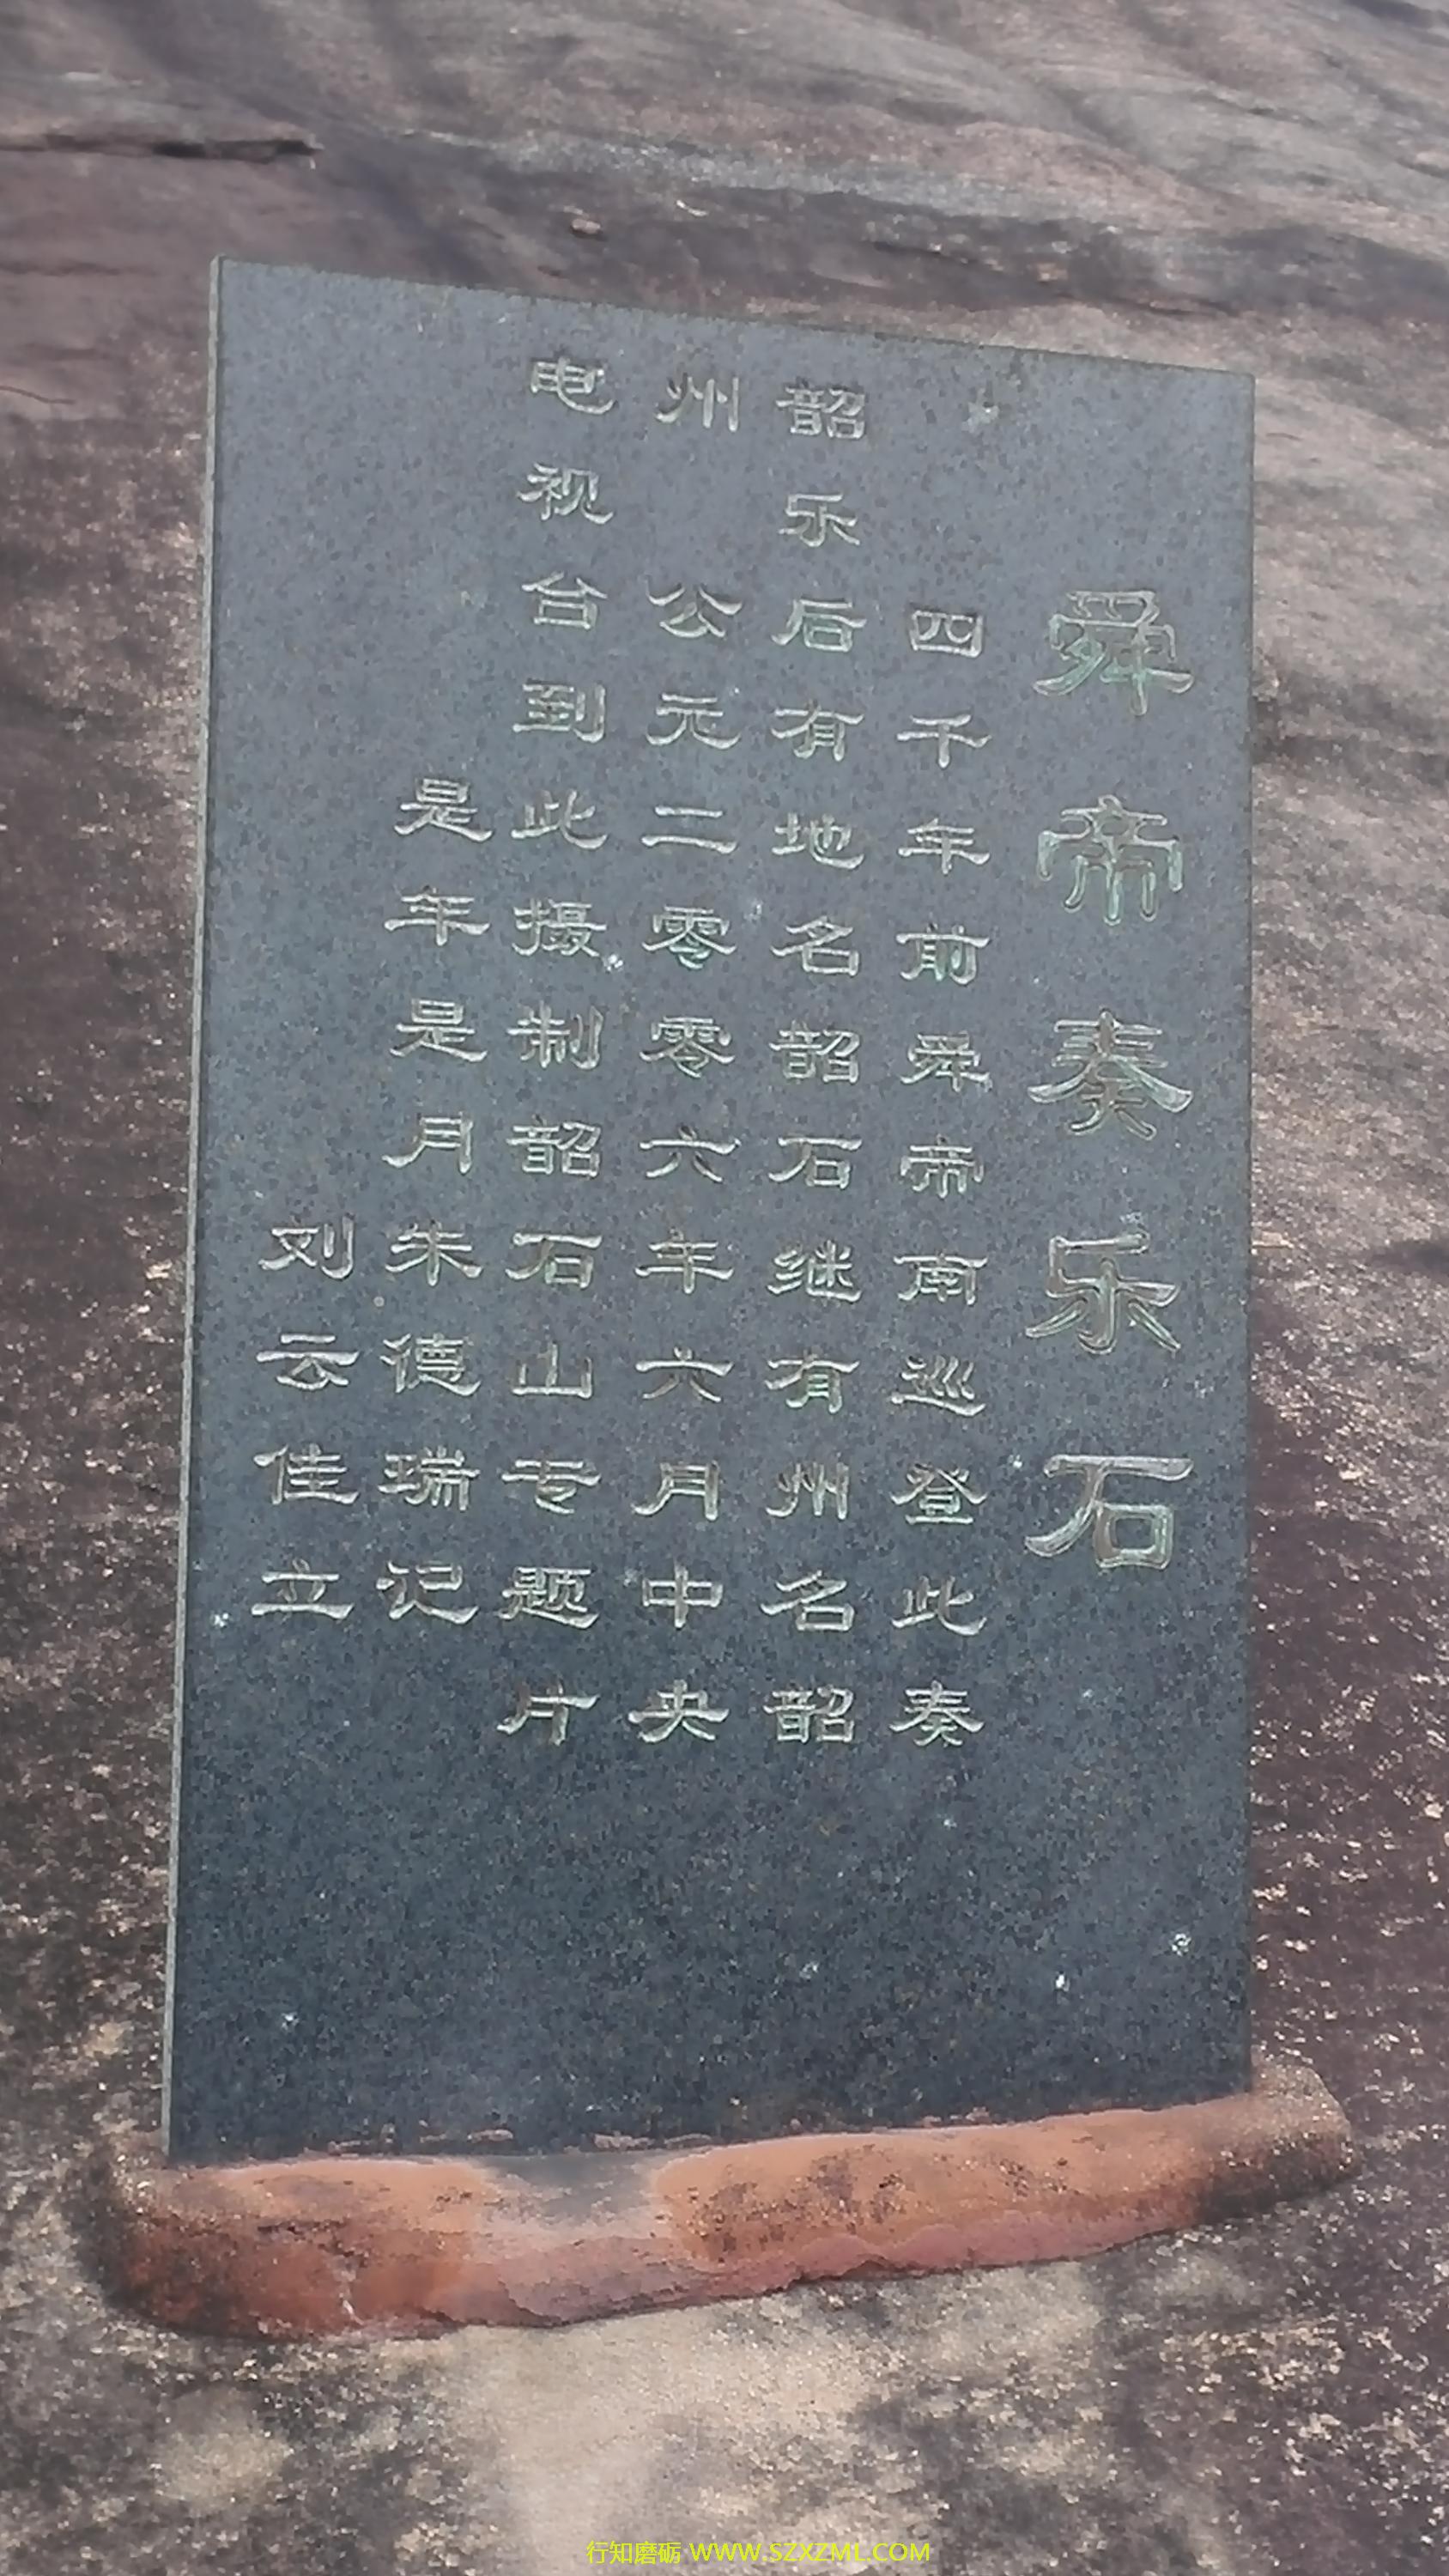 舜帝奏乐石
四千年前舜帝南巡登此奏
韶乐后有地名韶石继有州名韶
州 公元二零零六年六月中央
电视台到此摄制韶石山专题片
是年是月朱德瑞记
刘云佳立
行知磨砺 WWW.SZXZML.COM